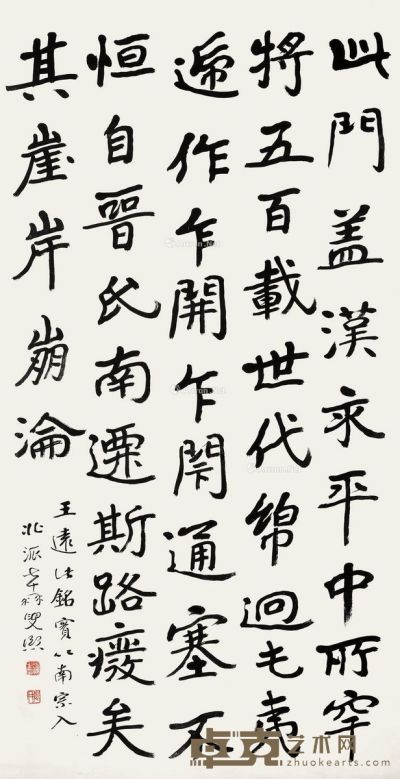 此門蓋漢永平中所穿
將五百載世代綿迴屯夷
遞作乍開乍閉通塞不
恒自晉氏南遷斯路廢矣
其崖岸崩淪
王遠此銘實以南宗入
北派
卓克艺术网
www.zhuokearts.com